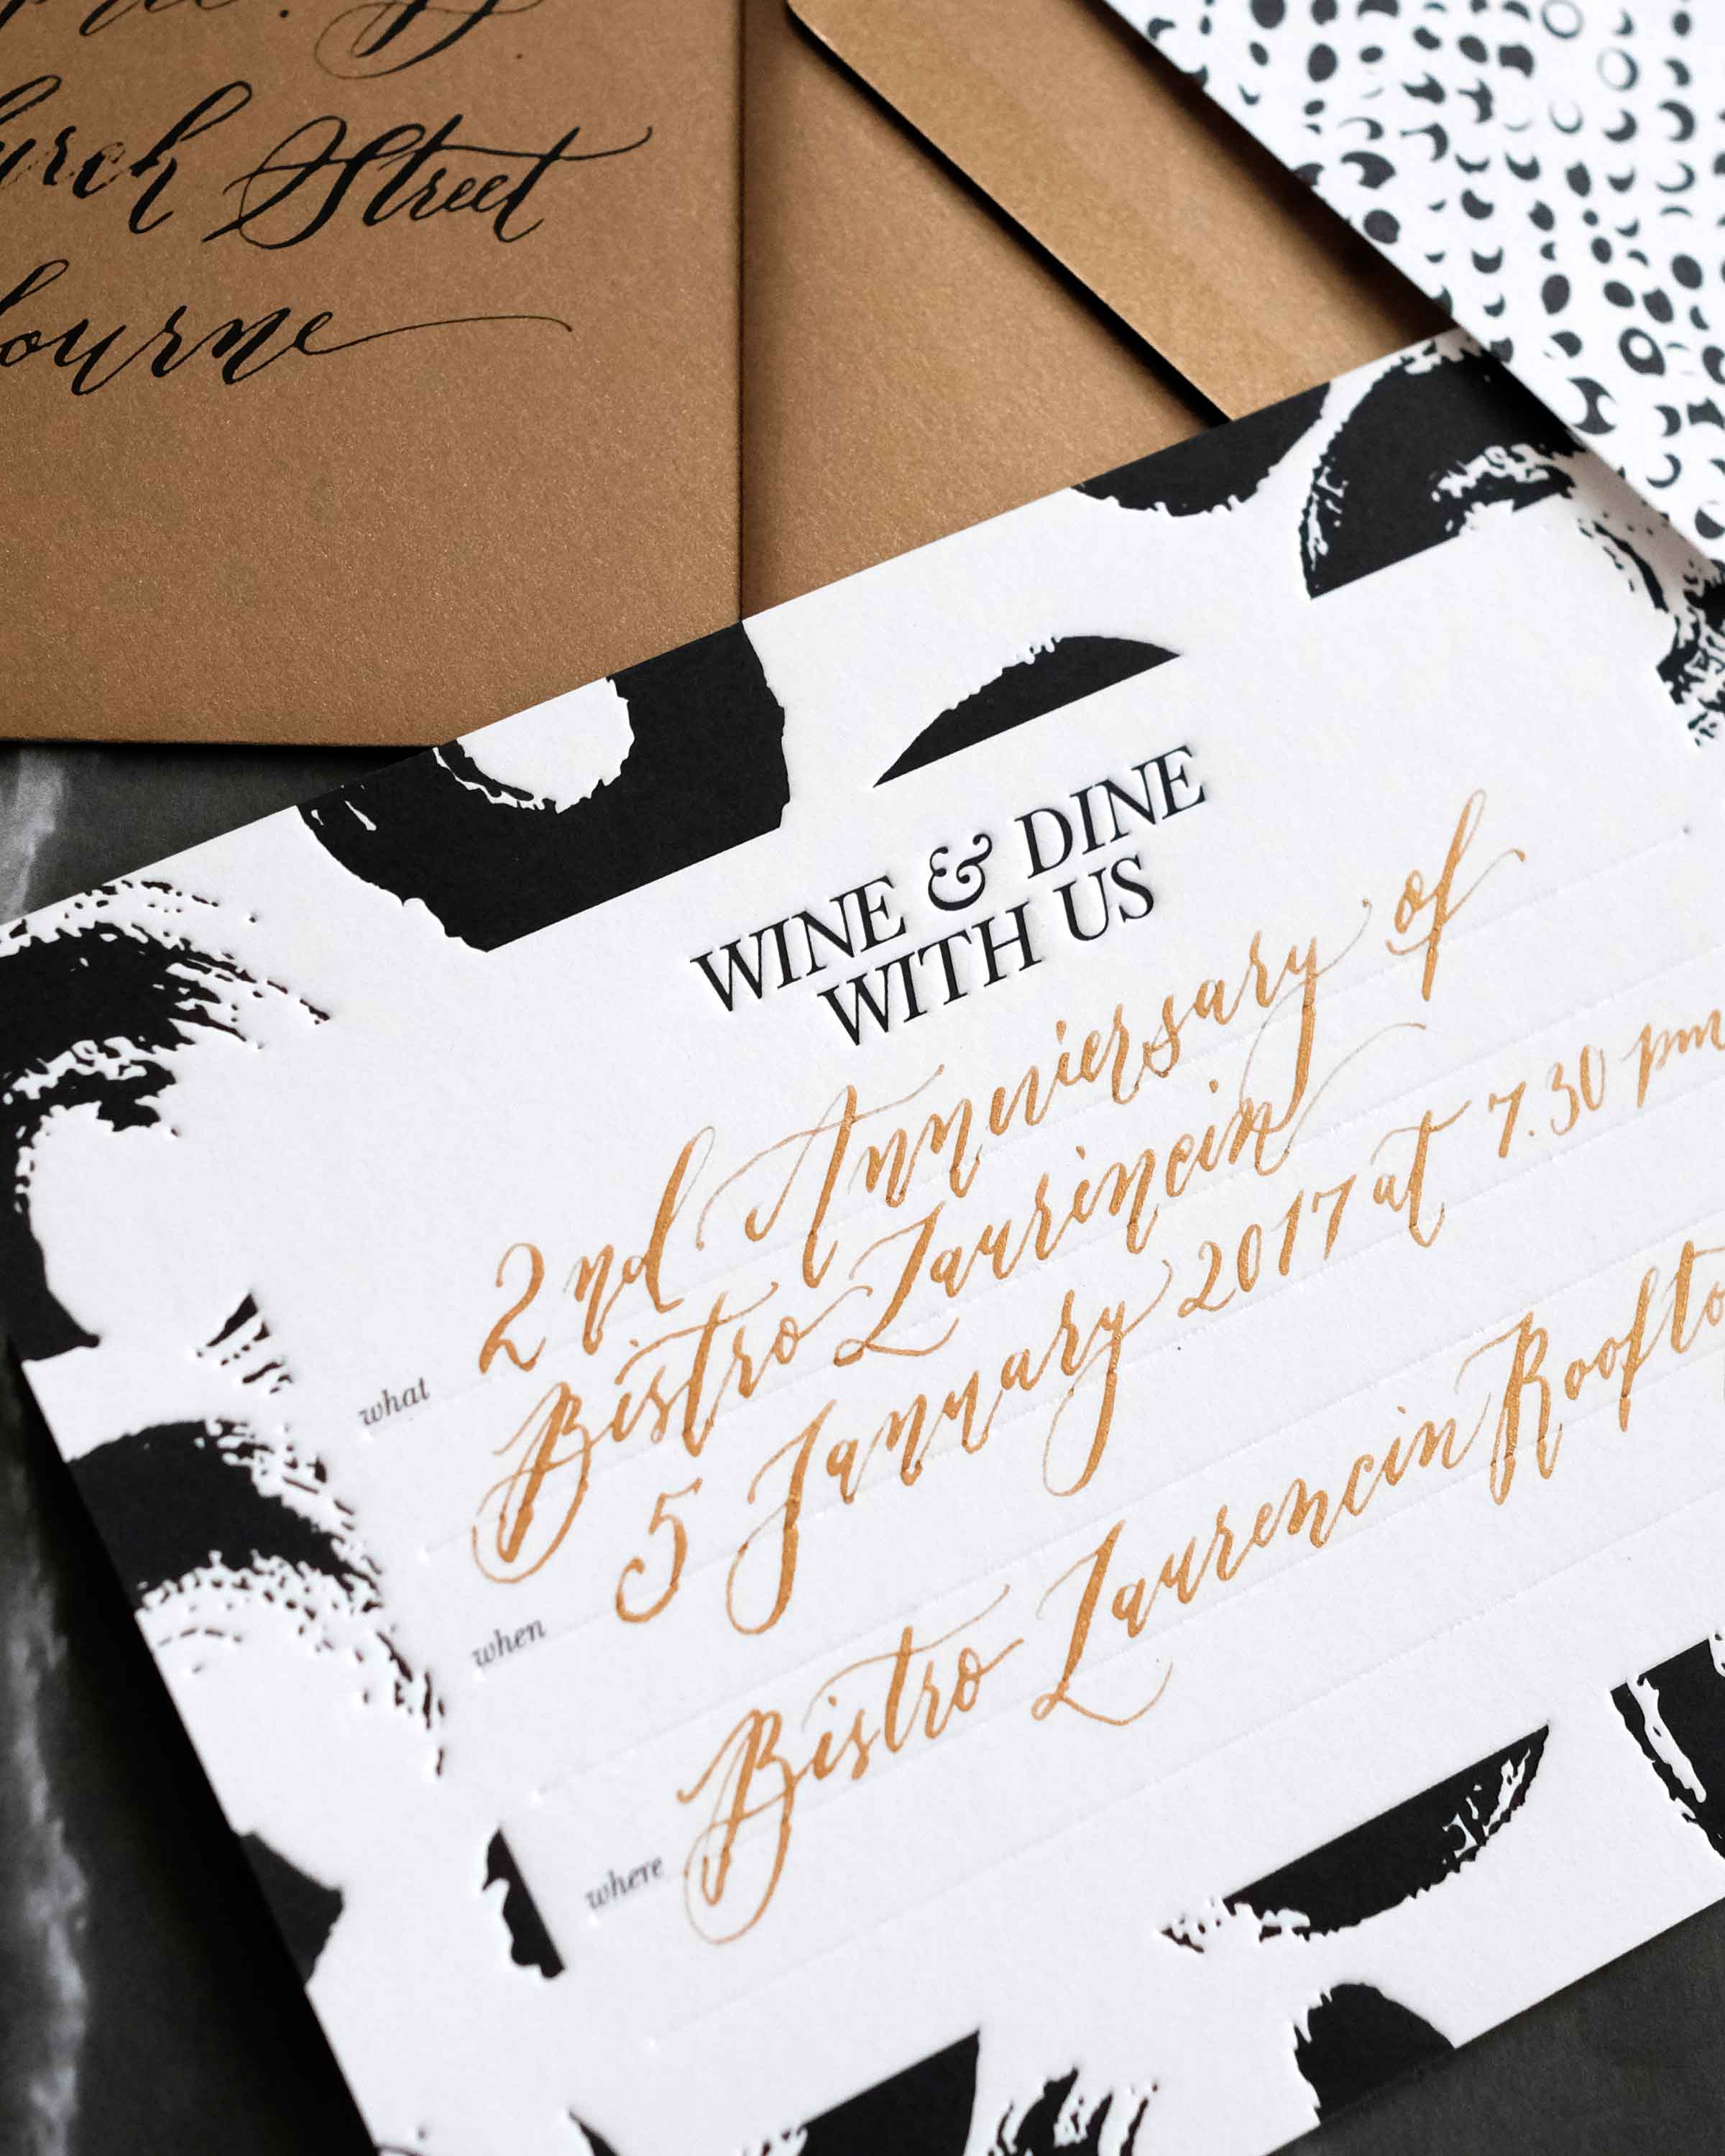 Street
WINE & DINE
WITH US
what
2nd Anniversary of
Bistro Laurincin
when
5 January 2017 at 7.30 pm
where
Bistro Laurencin